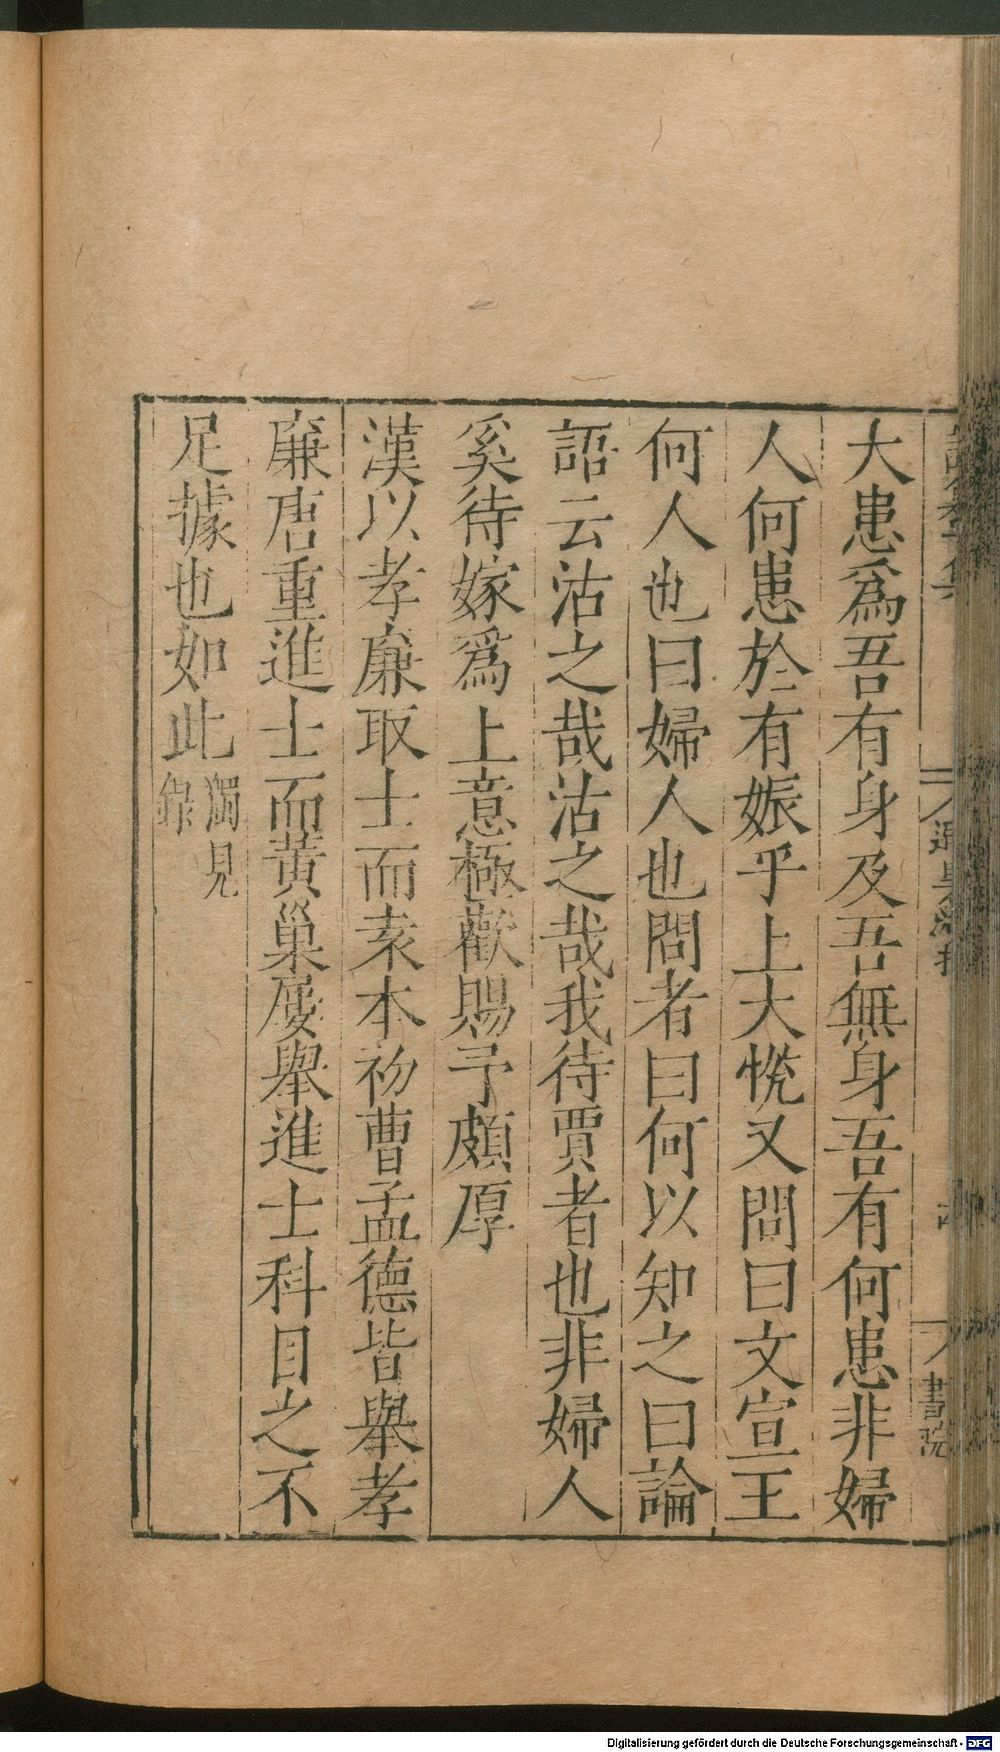 大患爲吾有身及吾無身吾有何患非婦
人何患於有娠乎上大恱又問曰文宣王
何人也曰婦人也問者曰何以知之曰論
語云沽之哉沽之哉我待賈者也非婦人
奚待嫁爲上意極歡賜予頗厚
漢以孝廉取士而袁本初曹孟德皆舉孝
廉唐重進士而黄巢屢舉進士科目之不
足據也如此獨見錄
書院
Digitalisierung gefördert durch die Deutsche Forschungsgemeinschaft - DFG